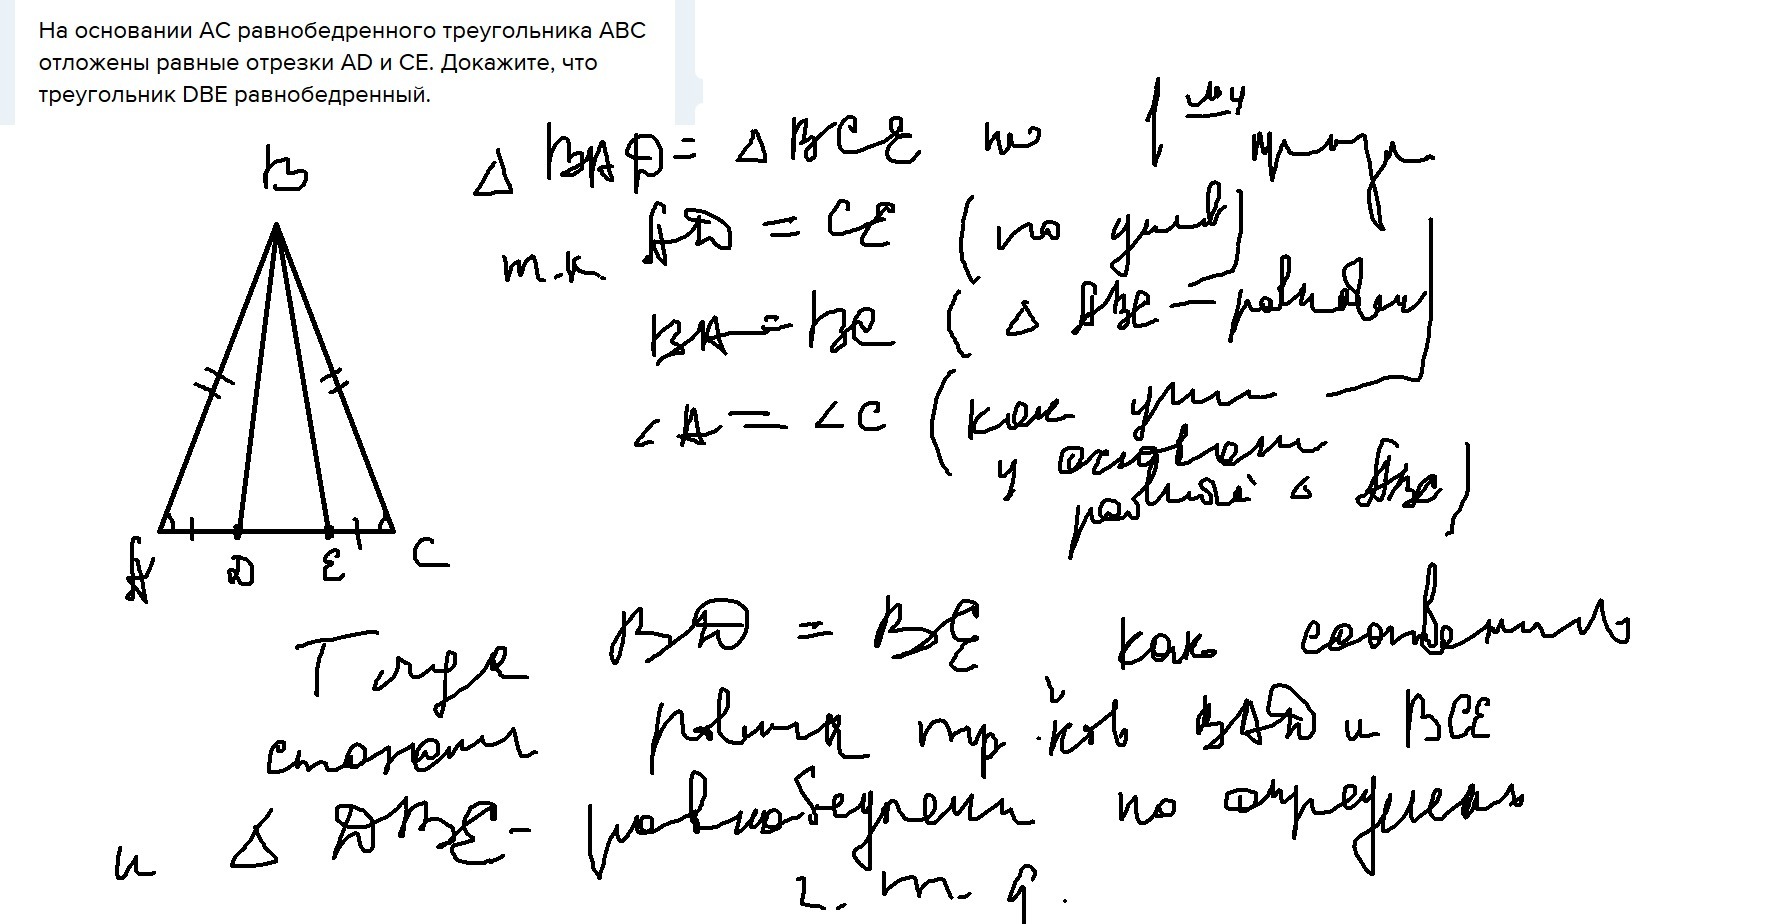 На основании AC равнобедренного треугольника ABC
отложены равные отрезки AD и CE. Докажите, что
треугольник DBE равнобедренный.
B
A D E C
△ BAD = △ BCE по 1 му призн
т.к AD = CE (по услов)
BA = BC (△ ABC – равнобедр)
∠A = ∠C (как углы
у основан
равноб △ ABC)
Тогда BD = BE как соответств
стороны равных тр-ков BAD и BCE
и △ DBE – равнобедренн по определен
ч.т.д.